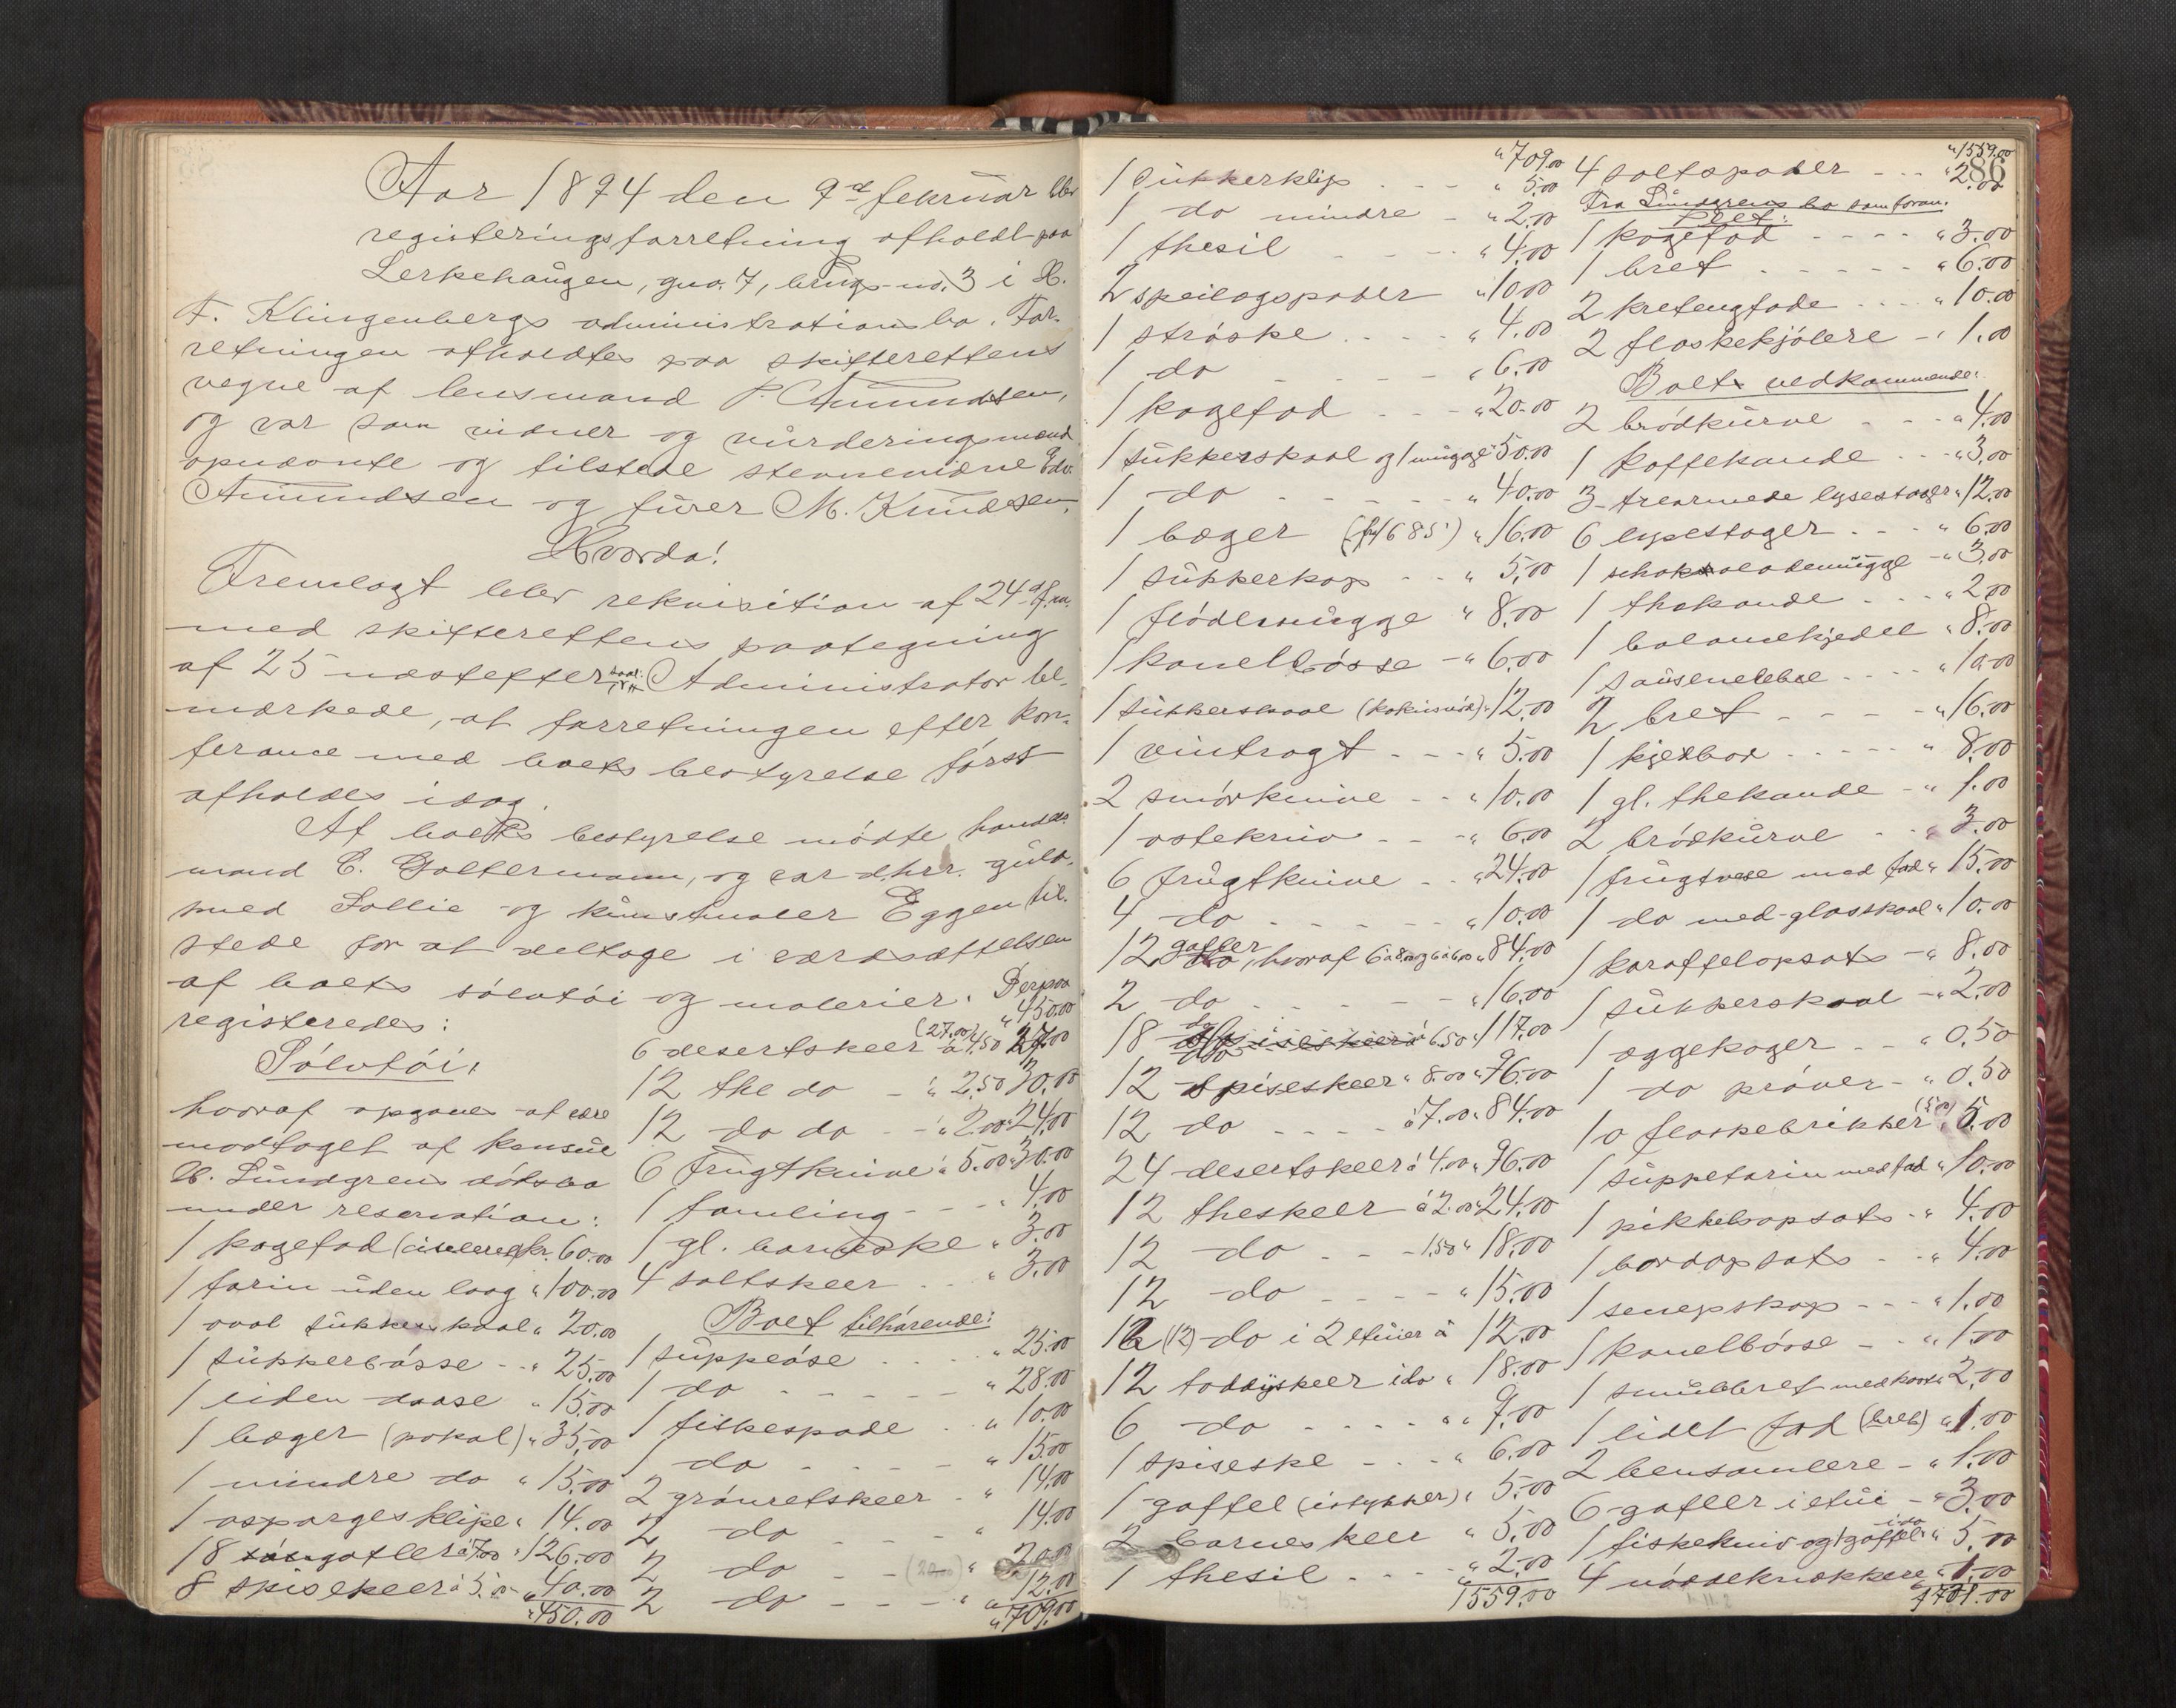 Aar 1894 den 9de februar blev
registeringsforretning afholdt paa
Lerkehaugen, gno. 7, brugs-no. 3 i H.
F. Klingenbergs administrationsbo. For-
retningen afholdtes paa skifterettens
vegne af lensmand P. Amundsen,
og var som vidner og vurderingsmænd
opnævnte og tilstede stevnevidne Edv.
Amundsen og furer M. Knudsen.
Hvorda!
Fremlagt blev rekvisition af 24 f. m.
med skifterettens paategning
af 25 næstefter. Administrator be-
mærkede, at forretningen efter kon-
ferance med boets bestyrelse først
afholdes idag.
Af boets bestyrelse mødte handels-
mand C. Goltermann, og var d'hrr. guld-
smed Sollie og kunstmaler Eggen til-
stede for at deltage i værdsættelsen
af boets sølvtøi og malerier. Derpaa
registeredes:
Sølvtøi,
hvoraf opgaves at være
modtaget af konsul
W. Lundgrens dødsbo
under reservation:
1 kagefad (ciseleret) kr. 60.00
1 tarin uden laag " 100.00
1 oval sukkerskaal " 20.00
1 sukkerbøsse - - " 25.00
1 liden daase " 15.00
1 bæger (pokal) " 35.00
1 mindre do " 15.00
1 aspargesklipe " 14.00
18 gafler à 7.00 " 126.00
8 spiskeer à 5.00 - " 40.00
" 450.00
" 450.00
6 desertskeer (27.00) à 4.50 27.00
12 the do - " 2.50 30.00
12 do do - - " 2.00 " 24.00
6 frugtknive à 5.00 " 30.00
1 samling - - - " 4.00
1 gl. barneske " 3.00
4 saltskeer - - " 3.00
Boet tilhørende:
1 suppeøse . . . . " 25.00
1 do - - - - - " 28.00
1 fiskespade . " 10.00
1 do - - - - " 15.00
2 grønretskeer - " 14.00
2 do - - - " 14.00
2 do - - (20.00) " 20.00
2 do - - - - " 12.00
" 709.00
" 709.00
1 sukkerklip . . . " 5.00
1 do mindre - " 2.00
1 thesil - - - - " 4.00
2 speilægspader " 10.00
1 strøske . . . . " 4.00
1 do - - - - - " 6.00
1 kagefad - - - " 20.00
1 sukkerskaal og 1 mugge " 50.00
1 do - - - - - " 40.00
1 bæger (fra 1685) " 16.00
1 sukkerkop - - " 5.00
1 flødemugge " 8.00
1 kanelbøsse - " 6.00
1 sukkerskaal (kokusnød) " 12.00
1 vintragt - - - " 5.00
2 smørknive - - " 10.00
1 ostekniv - - - " 6.00
6 frugtknive - . " 24.00
4 do - - - - - " 10.00
12 gafler, hvoraf 6 à 8.00 og 6 à 6.00 " 84.00
2 do - - - - - " 16.00
18 do à 6.50 " 117.00
12 spiseskeer " 8.00 " 96.00
12 do - - - - à 7.00 " 84.00
24 desertskeer à 4.00 " 96.00
12 theskeer à 2.00 " 24.00
12 do - - - 1.50 " 18.00
12 do - - - - " 15.00
12 (12) do i 2 etuier à 12.00
12 toddyskeer i do " 18.00
6 do - - - - " 9.00
1 spiseske - - - " 6.00
1 gaffel (istykker) " 5.00
2 barneskeer " 5.00
1 thesil - - - - " 2.00
1559.00
86
" 1559.00
4 saltspader - - - " 2.00
Fra Lundgrens bo som foran.
Plet:
1 kagefad - - - - " 3.00
1 bret - - - - - " 6.00
2 fade - - - " 10.00
2 flaskekjølere - " 1.00
Boet vedkommende:
2 brødkurve - - - " 4.00
1 kaffekande - - - " 3.00
3 trearmede lysestager " 12.00
6 lysestager - - - " 6.00
1 schokolademugge - " 3.00
1 thekande - - - " 2.00
1 balancekjedel " 8.00
1 - - - - " 10.00
2 bret - - - - - " 16.00
1 - - - - - " 8.00
1 gl. thekande - " 1.00
2 brødkurve - - " 3.00
1 frugtvase med fad " 15.00
1 do med glasskaal " 10.00
1 karaffelopsats - " 8.00
1 sukkerskaal - " 2.00
1 æggekoger - - " 0.50
1 do prøver - " 0.50
10 flaskebrikker (5.00) " 5.00
1 suppetarin med fad " 10.00
1 pikkelsopsats - " 4.00
1 bordopsats - - " 4.00
1 senepskop - - - " 1.00
1 kanelbøsse - " 1.00
1 smulebret med kost " 2.00
1 lidet fad (bret) " 1.00
2 bensamlere - " 1.00
6 gafler i etui - " 3.00
1 fiskekniv og 1 gaffel i do " 5.00
4 nøddeknækkere " 1.00
" 1701.00